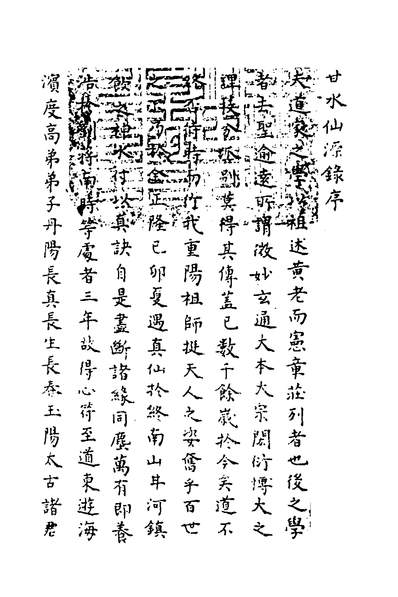 甘水仙源錄序
夫道家之學以祖述黃老而憲章莊列者也後之學
者去聖逾遠所謂微妙玄通大本大宗閎衍博大之
譚技分派別莫得其傳蓋已數千餘歲於今矣道不
終否待時而行我重陽祖師挺天人之姿奮乎百世
之正隆己卯夏遇真仙於終南山甘河鎮
飲之神水付以真訣自是盡斷諸緣同塵萬有即養
浩於劉蔣南時等處者三年故得心符至道東遊海
濱度高弟弟子丹陽長真長生長春玉陽太古諸君